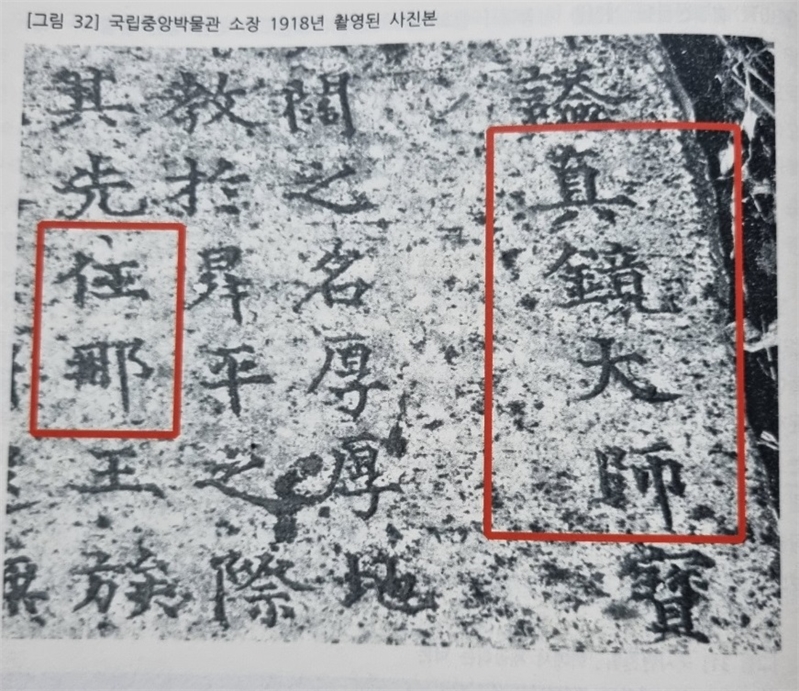 [그림 32] 국립중앙박물관 소장 1918년 촬영된 사진본
諡真鏡大師寶
闊之名厚厚地
教於昇平之際
其先任那王族